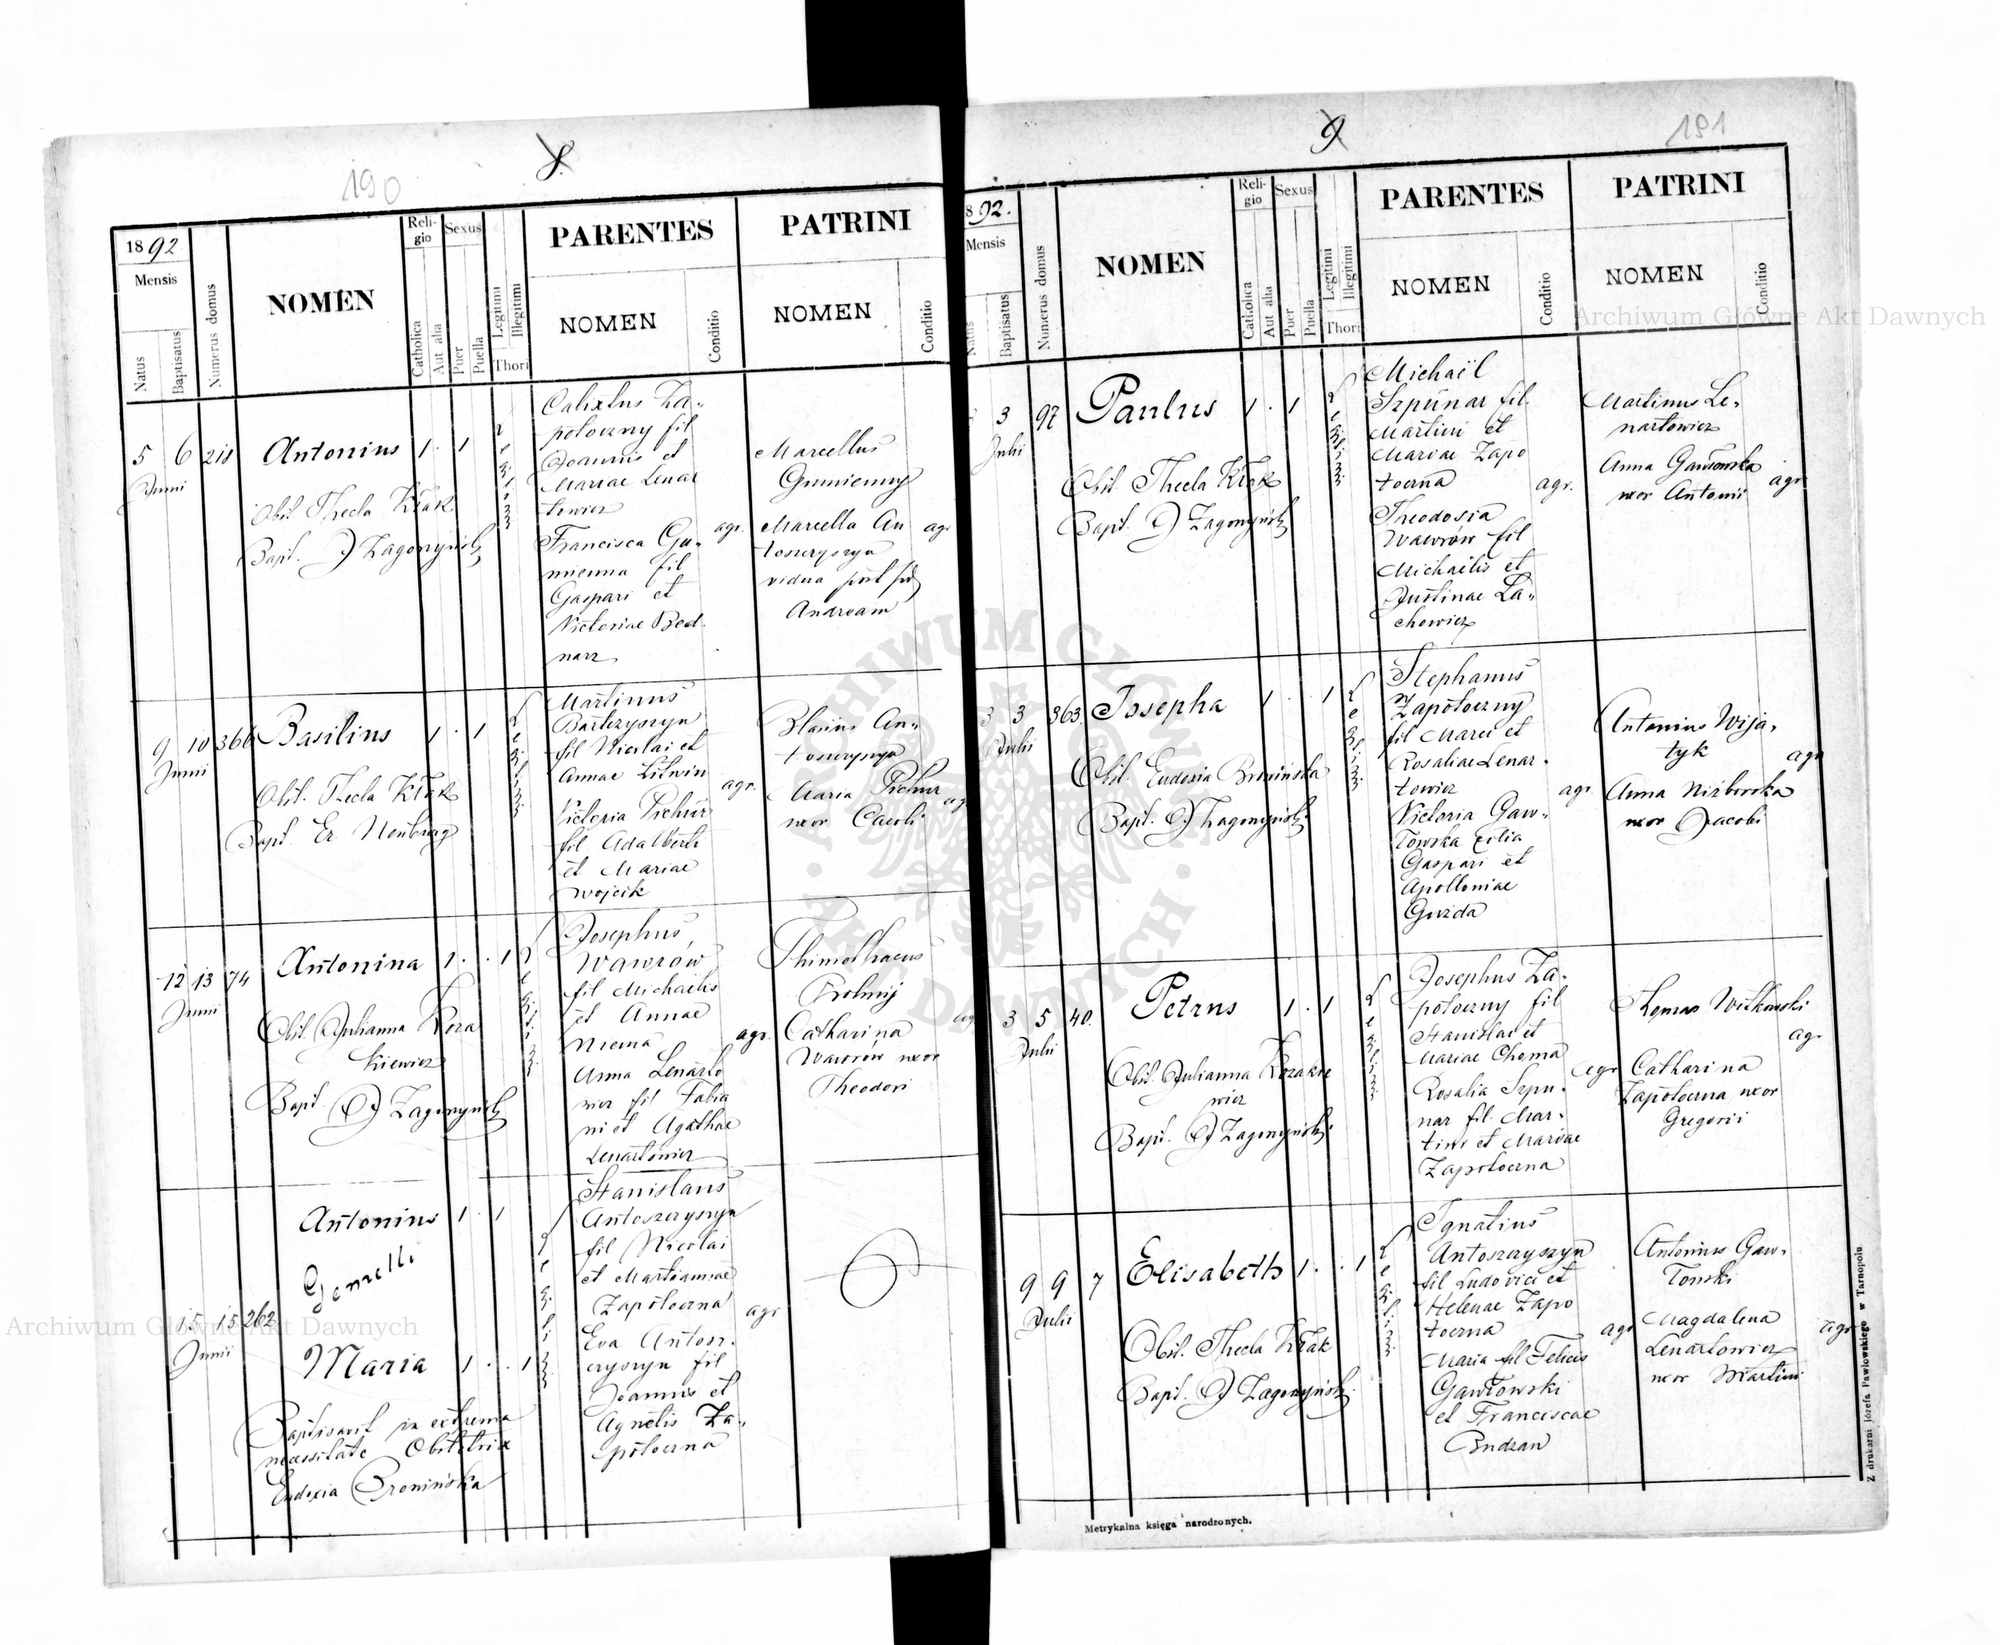 190
8.
1892
Mensis
Natus
Baptisatus
Numerus domus
NOMEN
Reli-
gio
Catholica
Aut alia
Sexus
Puer
Puella
Legitimi
Illegitimi
Thori
PARENTES
NOMEN
Conditio
PATRINI
NOMEN
Conditio
5 6 218
Junii
Antonius 1 . 1
Obst. Thecla Kłak
Bapt. J Zagonyński
Calixtus Za-
połoczny fil
Joannis et
Mariae Lenar
towicz
Francisca Gu-
mienna fil
Gaspari et
Victoriae Bed-
narz
agr.
Marcellus
Gumienny
Marcella An
toszczyszyn
vidua post
Andream
agr
9 10 366
Junii
Basilius 1 . 1
Obst. Thecla Kłak
Bapt Er. Neuburg
Martinus
Bartczyszyn
fil Nicolai et
Annae Litwin
Victoria Pichur
fil Adalberti
et Mariae
Wojcik
agr.
Blasius An-
toszczyszyn
Maria Pichur
uxor Caroli
agr
12 13 74
Junii
Antonina 1 . . 1
Obst. Julianna Koza
kiewicz
Bapt. J Zagonyński
Josephus
Wawrow
fil Michaelis
et Annae
Niema
Anna Lenarto
wicz fil Fabia
ni et Agathae
Lenartowicz
agr.
Thimothaeus
Catharina
Wawrow uxor
Theodori
agr
15 15 262
Junii
Antonius 1 . 1
Gemelli
Maria 1 . . 1
Baptisavit in extrema
necessitate Obstetrix
Eudoxia Bronińska
Stanislaus
Antoszczyszyn
fil Nicolai
et Martiannae
Zapołoczna
Eva Antosz-
czyszyn fil
Joannis et
Agnetis Za-
połoczna
agr
9
191
1892.
Mensis
Natus
Baptisatus
Numerus domus
NOMEN
Reli-
gio
Catholica
Aut alia
Sexus
Puer
Puella
Legitimi
Illegitimi
Thori
PARENTES
NOMEN
Conditio
PATRINI
NOMEN
Conditio
3 97
Julii
Paulus 1 . 1
Obst. Thecla Kłak
Bapt. J Zagonyński
Michaël
Szpunar fil.
Martini et
Mariae Zapo
łoczna
Theodosia
Wawrow fil
Michaelis et
Justinae La-
chowicz
agr.
Martinus Le-
nartowicz
Anna Gawłowska
uxor Antonii
agr
3 3 363
Julii
Josepha 1 . . 1
Obst. Eudoxia Bronińska
Bapt. J Zagonyński
Stephanus
Zapołoczny
fil Marci et
Rosaliae Lenar-
towicz
Victoria Gaw-
łowska filia
Gaspari et
Apolloniae
Guzda
agr
Antonius Wija-
tyk
Anna Nizborska
uxor Jacobi
agr
3 5 40.
Julii
Petrus 1 . 1
Obst. Julianna Kozakie
wicz
Bapt. J Zagonyński
Josephus Za-
połoczny fil
Stanislai et
Mariae Choma
Rosalia Szpu-
nar fil. Mar-
tini et Mariae
Zapołoczna
agr
Thomas Witkowski
Catharina
Zapołoczna uxor
Gregorii
agr
9 9 7
Julii
Elisabeth 1 . . 1
Obst. Thecla Kłak
Bapt. J Zagonyński
Ignatius
Antoszczyszyn
fil Ludovici et
Helenae Zapo
łoczna
Maria fil Felicis
Gawłowski
et Franciscae
Budzan
agr
Antonius Gaw-
łowski
Magdalena
Lenartowicz
uxor Martini
agr
Metrykalna księga narodzonych.
Z drukarni Józefa Pawłowskiego w Tarnopolu
Archiwum Główne Akt Dawnych
Archiwum Główne Akt Dawnych
ARCHIWUM GŁÓWNE
AKT DAWNYCH